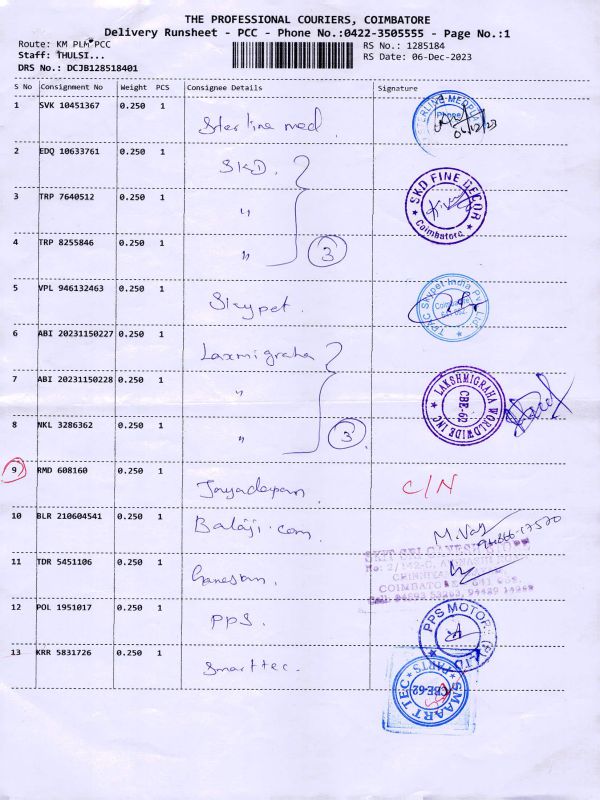 THE PROFESSIONAL COURIERS, COIMBATORE
Delivery Runsheet - PCC - Phone No.:0422-3505555 - Page No.:1
Route: KM PLM PCC
RS No.: 1285184
Staff: THULSI...
RS Date: 06-Dec-2023
DRS No.: DCJB128518401
S No Consignment No Weight PCS Consignee Details Signature
1 SVK 10451367 0.250 1 Starline med. STERLINE MEDPLUS Phone 06/12/23
2 EDQ 10633761 0.250 1 SKD.
3 TRP 7640512 0.250 1 " SKD FINE DECOR Coimbatore
4 TRP 8255846 0.250 1 " 3
5 VPL 946132463 0.250 1 Skypet. Skypet India Pvt. Ltd. Coimbatore
6 ABI 20231150227 0.250 1 Laxmigraha
7 ABI 20231150228 0.250 1 " LAKSHMIGRAHA WORLDWIDE INC CBE-62
8 NKL 3286362 0.250 1 " 3
9 RMD 608160 0.250 1 Jayadeepam C/N
10 BLR 210604541 0.250 1 Balaji.com M.Vay
11 TDR 5451106 0.250 1 Ganesan. COIMBATORE
12 POL 1951017 0.250 1 PPS. PPS MOTORS (P) LTD
13 KRR 5831726 0.250 1 Smarttec. SMAART TEC PARTS CBE-62